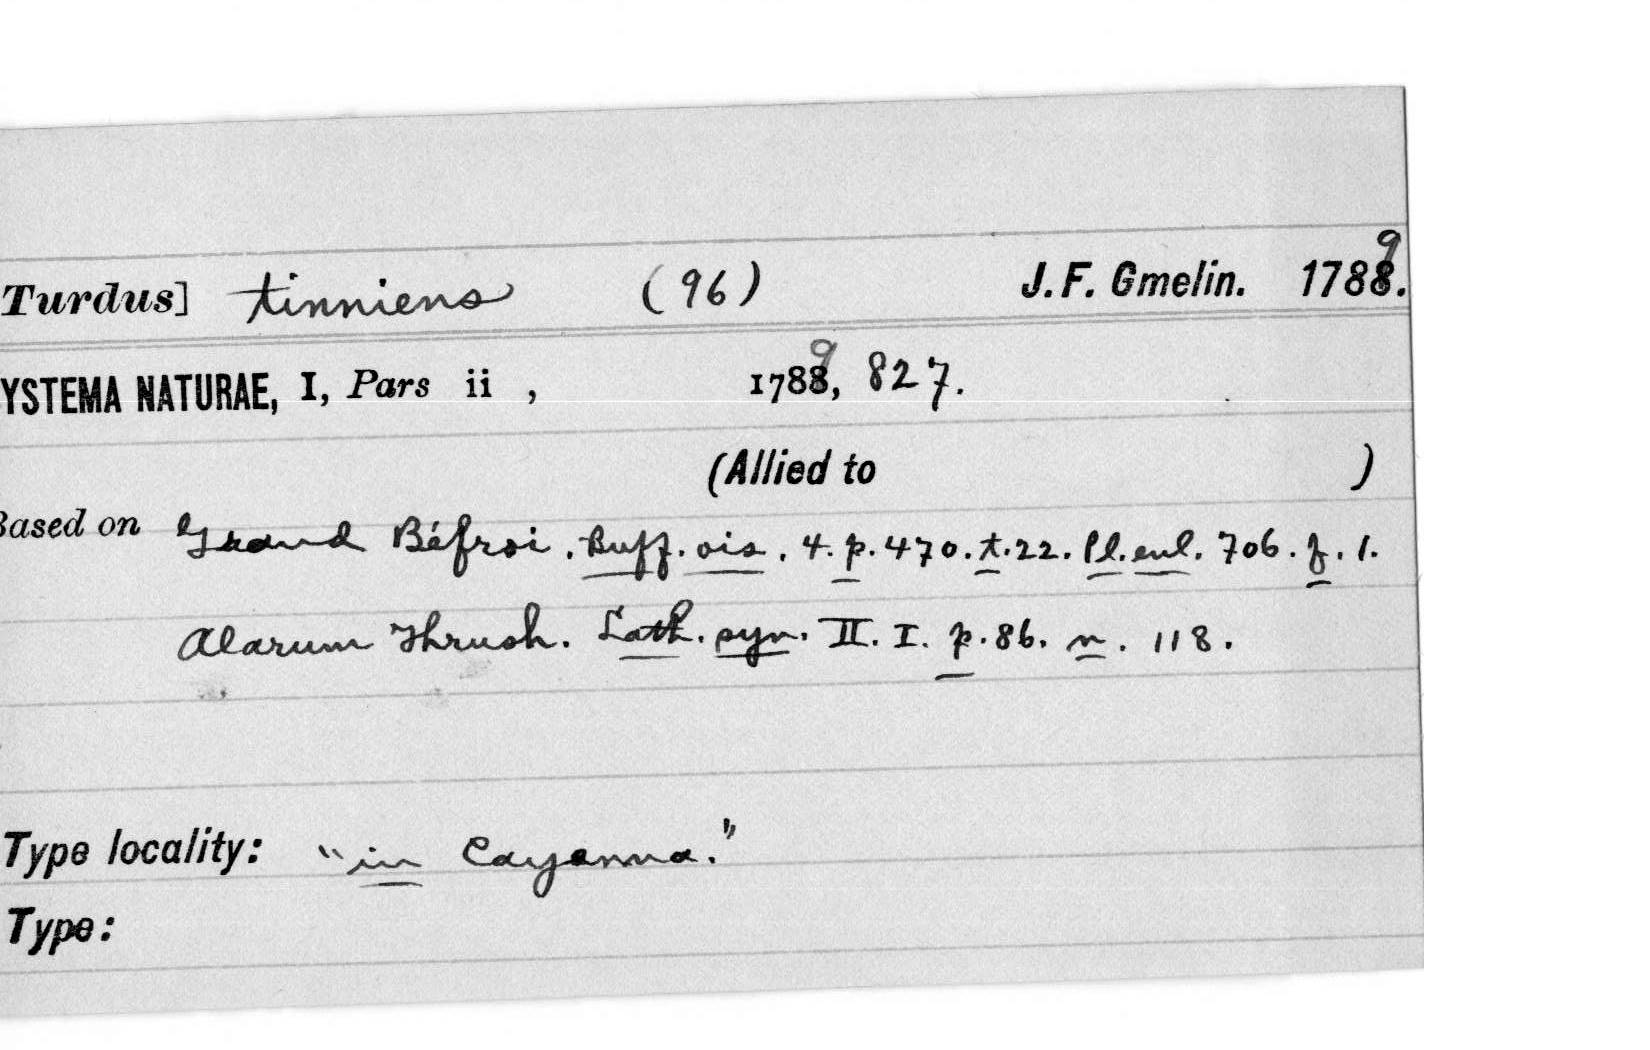 Turdus] tinniens (96) J. F. Gmelin. 1789.
YSTEMA NATURAE, I, Pars ii , 1789, 827.
(Allied to )
Based on Grand Béfroi. Buff. ois. 4. p. 470. t. 22. Pl. enl. 706. f. 1.
Alarum Thrush. Lath. syn. II. I. p. 86. n. 118.
Type locality: "in Cayenna."
Type: